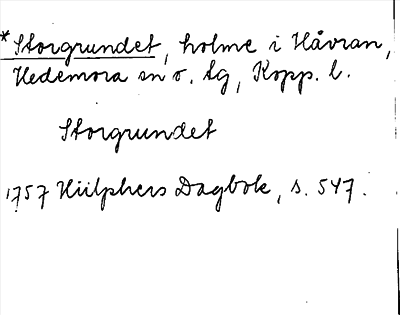 *Storgrundet, holme i Håvran,
Hedemora sn o. tg, Kopp. l.
Storgrundet
1757 Hülphers Dagbok, s. 547.